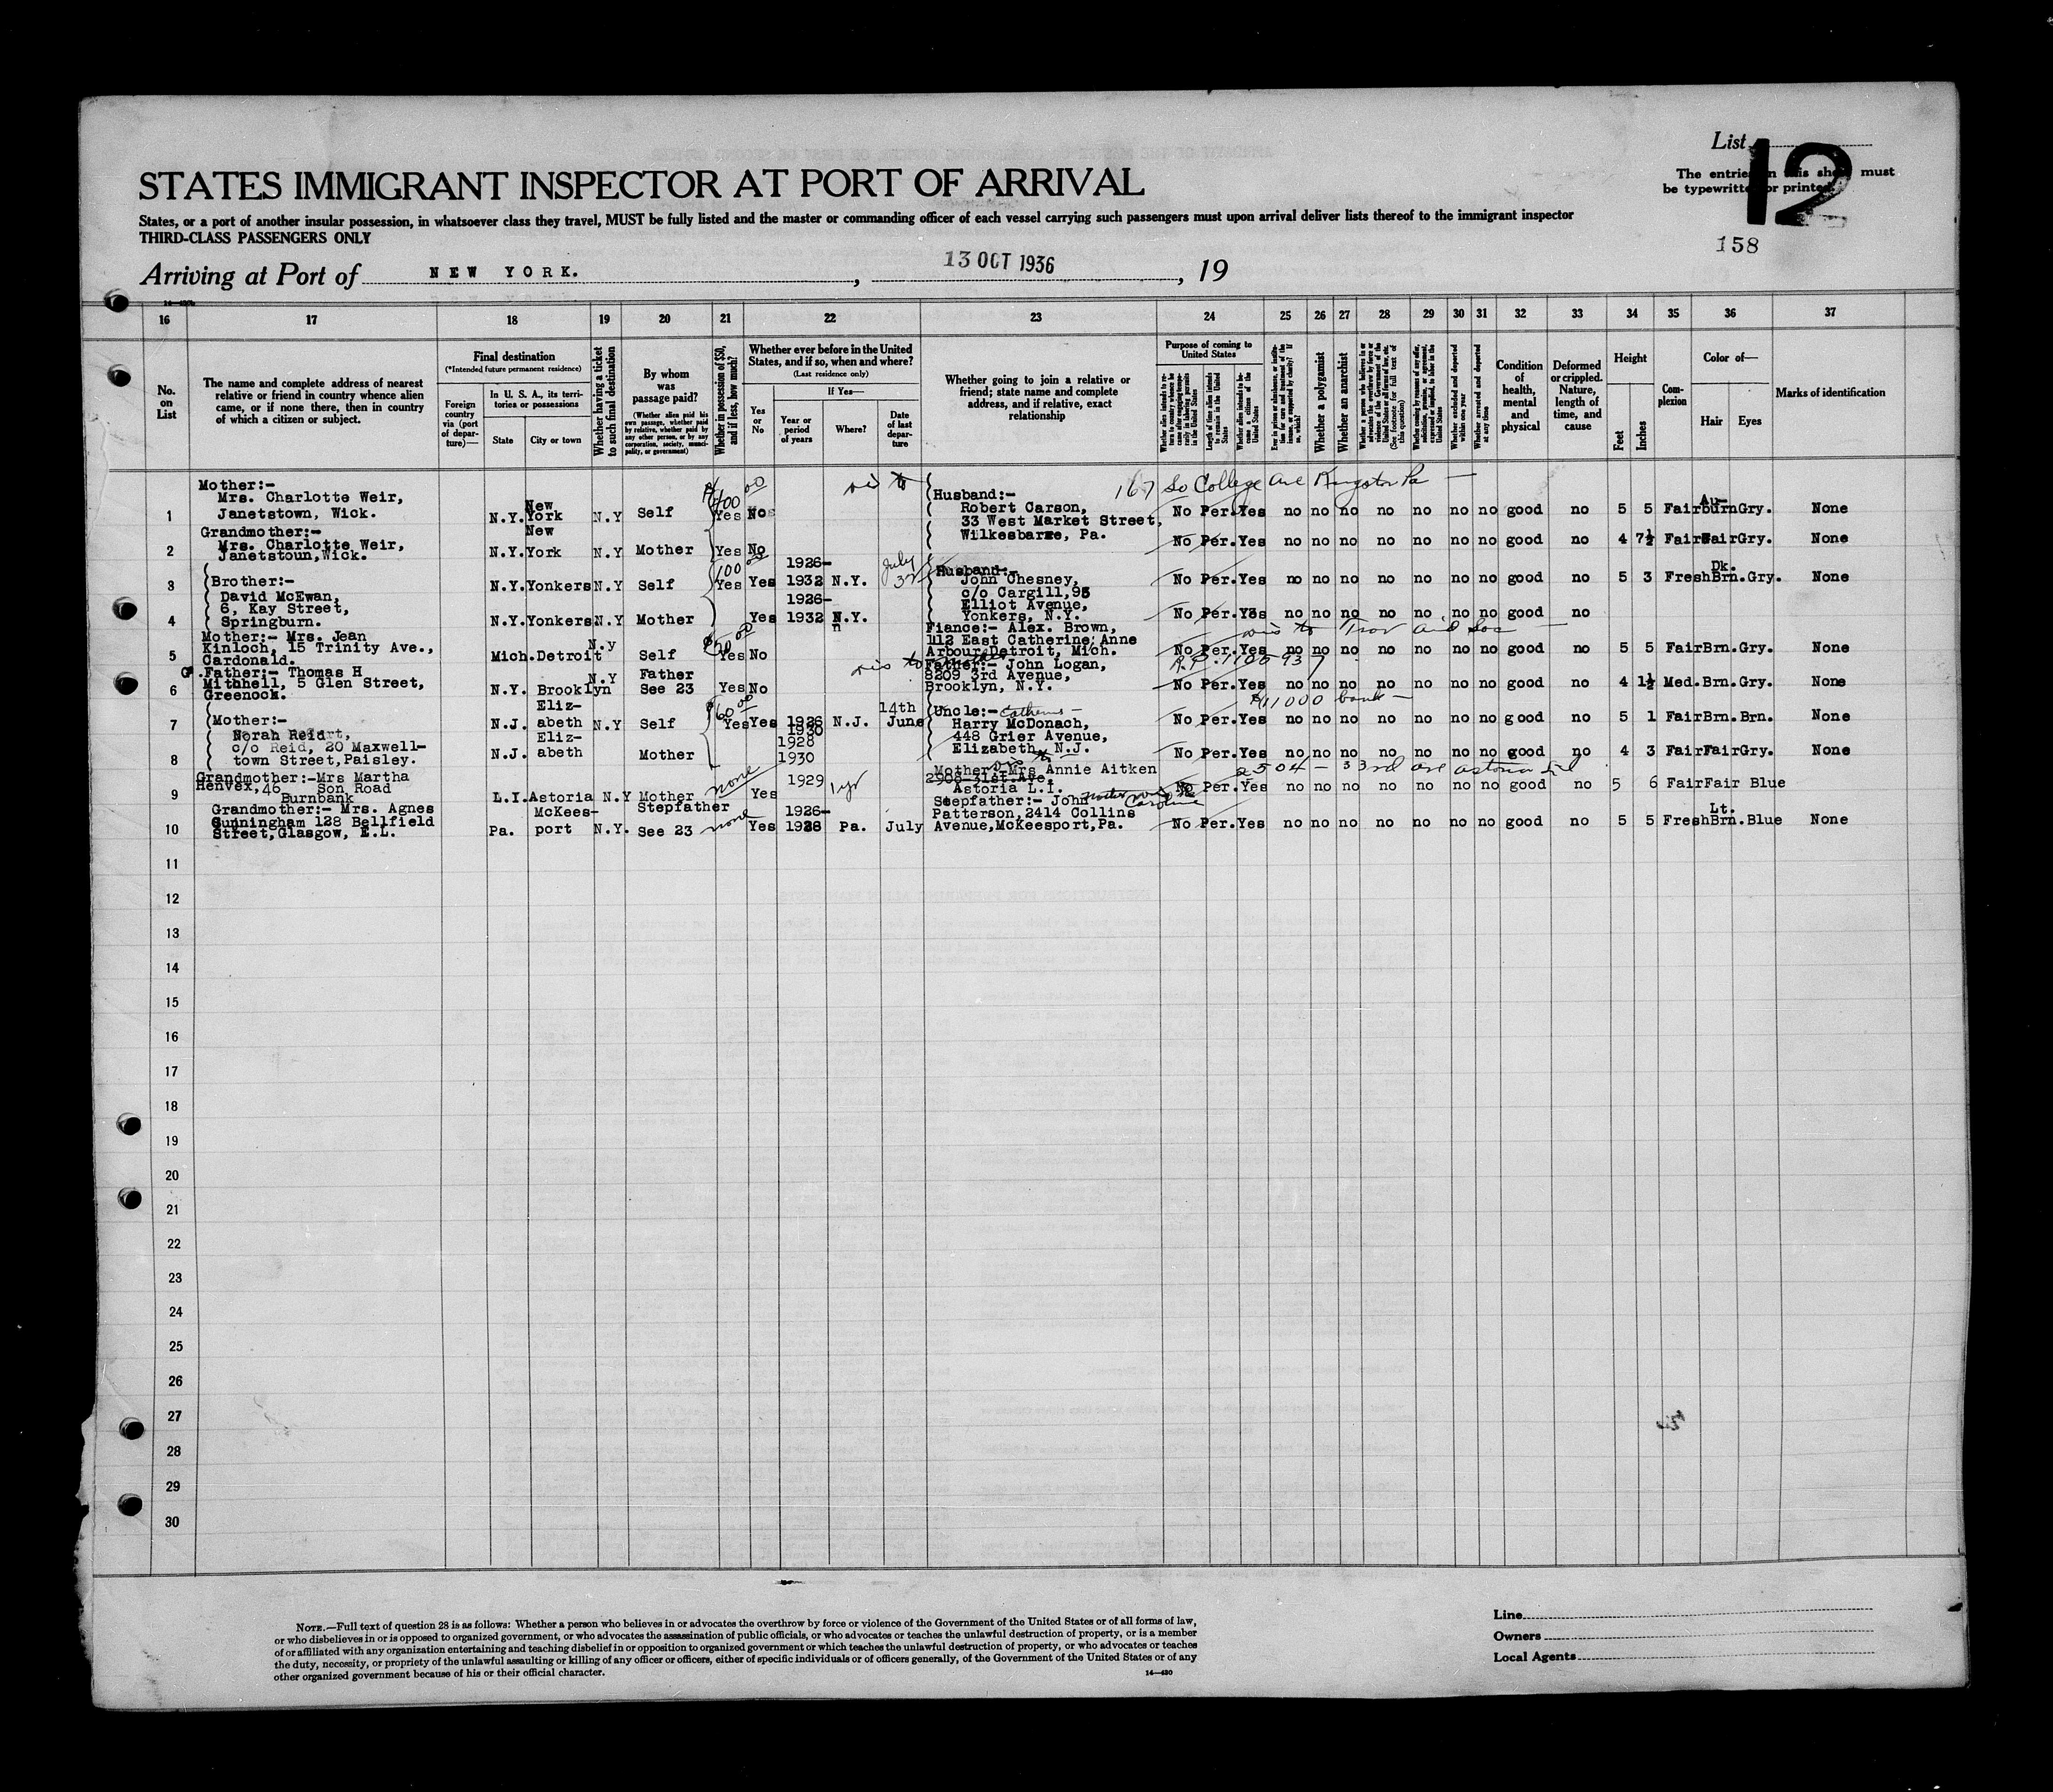 List
12
The entries in this sheet must
be typewritten or printed.
158
STATES IMMIGRANT INSPECTOR AT PORT OF ARRIVAL
States, or a port of another insular possession, in whatsoever class they travel, MUST be fully listed and the master or commanding officer of each vessel carrying such passengers must upon arrival deliver lists thereof to the immigrant inspector
THIRD-CLASS PASSENGERS ONLY
Arriving at Port of NEW YORK. , 13 OCT 1936 , 19
16 17 18 19 20 21 22 23 24 25 26 27 28 29 30 31 32 33 34 35 36 37
No. on List
The name and complete address of nearest relative or friend in country whence alien came, or if none there, then in country of which a citizen or subject.
Final destination
(*Intended future permanent residence)
Foreign country via (port of departure)—
In U. S. A., its territories or possessions
State
City or town
Whether having a ticket to such final destination
By whom was passage paid?
(Whether alien paid his own passage, whether paid by relative, whether paid by any other person, or by any corporation, society, municipality, or government)
Whether in possession of $50, and if less, how much?
Whether ever before in the United States, and if so, when and where?
(Last residence only)
Yes or No
If Yes—
Year or period of years
Where?
Date of last departure
Whether going to join a relative or friend; state name and complete address, and if relative, exact relationship
Purpose of coming to United States
Length of time alien intends to remain in the United States
Whether alien intends to become a citizen of the United States
Whether a polygamist
Whether an anarchist
(See footnote for full text of this question)
Whether excluded and deported within one year
Whether arrested and deported at any time
Condition of health, mental and physical
Deformed or crippled. Nature, length of time, and cause
Height
Feet
Inches
Complexion
Color of—
Hair
Eyes
Marks of identification
167 So College Ave Kingston Pa
1 Mother:- Mrs. Charlotte Weir, Janetstown, Wick. N.Y. New York N.Y Self $400 00 Yes No Husband:- Robert Carson, 33 West Market Street, Wilkesbarre, Pa. No Per. Yes no no no no no no no good no 5 5 Fair Au-burn Gry. None
2 Grandmother:- Mrs. Charlotte Weir, Janetstoun, Wick. N.Y. New York N.Y Mother Yes No No Per. Yes no no no no no no no good no 4 7½ Fair Fair Gry. None
3 Brother:- David McEwan, 6, Kay Street, Springburn. N.Y. Yonkers N.Y Self 100 Yes Yes 1926-1932 N.Y. July 32 Husband:- John Chesney, c/o Cargill, 95 Elliot Avenue, Yonkers, N.Y. No Per. Yes no no no no no no no good no 5 3 Fresh Dk. Brn. Gry. None
4 N.Y. Yonkers N.Y Mother Yes 1926-1932 N.Y. No Per. Yes no no no no no no no good no
5 Mother:- Mrs. Jean Kinloch, 15 Trinity Ave., Cardonald. Mich. Detroit N.y Self $50 00 Yes No Fiance:- Alex. Brown, 1112 East Catherine, Anne Arbour Detroit, Mich. No Per. Yes no no no no no no no good no 5 5 Fair Brn. Gry. None
6 G.Father:- Thomas H Mithhell, 5 Glen Street, Greenock. N.Y. Brooklyn N.Y Father See 23 Yes No Father:- John Logan, 8209 3rad Avenue, Brooklyn, N.Y. No Per. Yes no no no no no no no good no 4 1½ Med. Brn. Gry. None
$11000 bank
7 Mother:- Norah Reid, c/o Reid, 20 Maxwell-town Street, Paisley. N.J. Eliz-abeth N.Y Self $60 00 Yes Yes 1926 1930 N.J. 14th June Uncle:- Harry McDonach, 448 Grier Avenue, Elizabeth, N.J. No Per. Yes no no no no no no no good no 5 1 Fair Brn. Brn. None
8 N.J. Eliz-abeth Mother 1928 1930 No Per. Yes no no no no no no no good no 4 3 Fair Fair Gry. None
9 Grandmother:-Mrs Martha Henvex, 46 Son Road Burnbank L.I. Astoria N.Y Mother none Yes 1929 1yr Mother:- Mrs Annie Aitken 2906-31st.Ave, Astoria L.I. 2504 - 33rd ave astoria No Per. Yes no no no no no no no good no 5 6 Fair Fair Blue
10 Grandmother:- Mrs. Agnes Cunningham 128 Bellfield Street, Glasgow, E.L. Pa. McKees-port N.Y. Stepfather See 23 none Yes 1926-1928 Pa. July Stepfather:- John Patterson, 2414 Collins Avenue, McKeesport, Pa. Caroline No Per. Yes no no no no no no no good no 5 5 Fresh Lt. Brn. Blue None
11
12
13
14
15
16
17
18
19
20
21
22
23
24
25
26
27
28
29
30
NOTE.—Full text of question 28 is as follows: Whether a person who believes in or advocates the overthrow by force or violence of the Government of the United States or of all forms of law,
or who disbelieves in or is opposed to organized government, or who advocates the assassination of public officials, or who advocates or teaches the unlawful destruction of property, or is a member
of or affiliated with any organization entertaining and teaching disbelief in or opposition to organized government or which teaches the unlawful destruction of property, or who advocates or teaches
the duty, necessity, or propriety of the unlawful assaulting or killing of any officer or officers, either of specific individuals or of officers generally, of the Government of the United States or of any
other organized government because of his or their official character.
14—430
Line
Owners
Local Agents